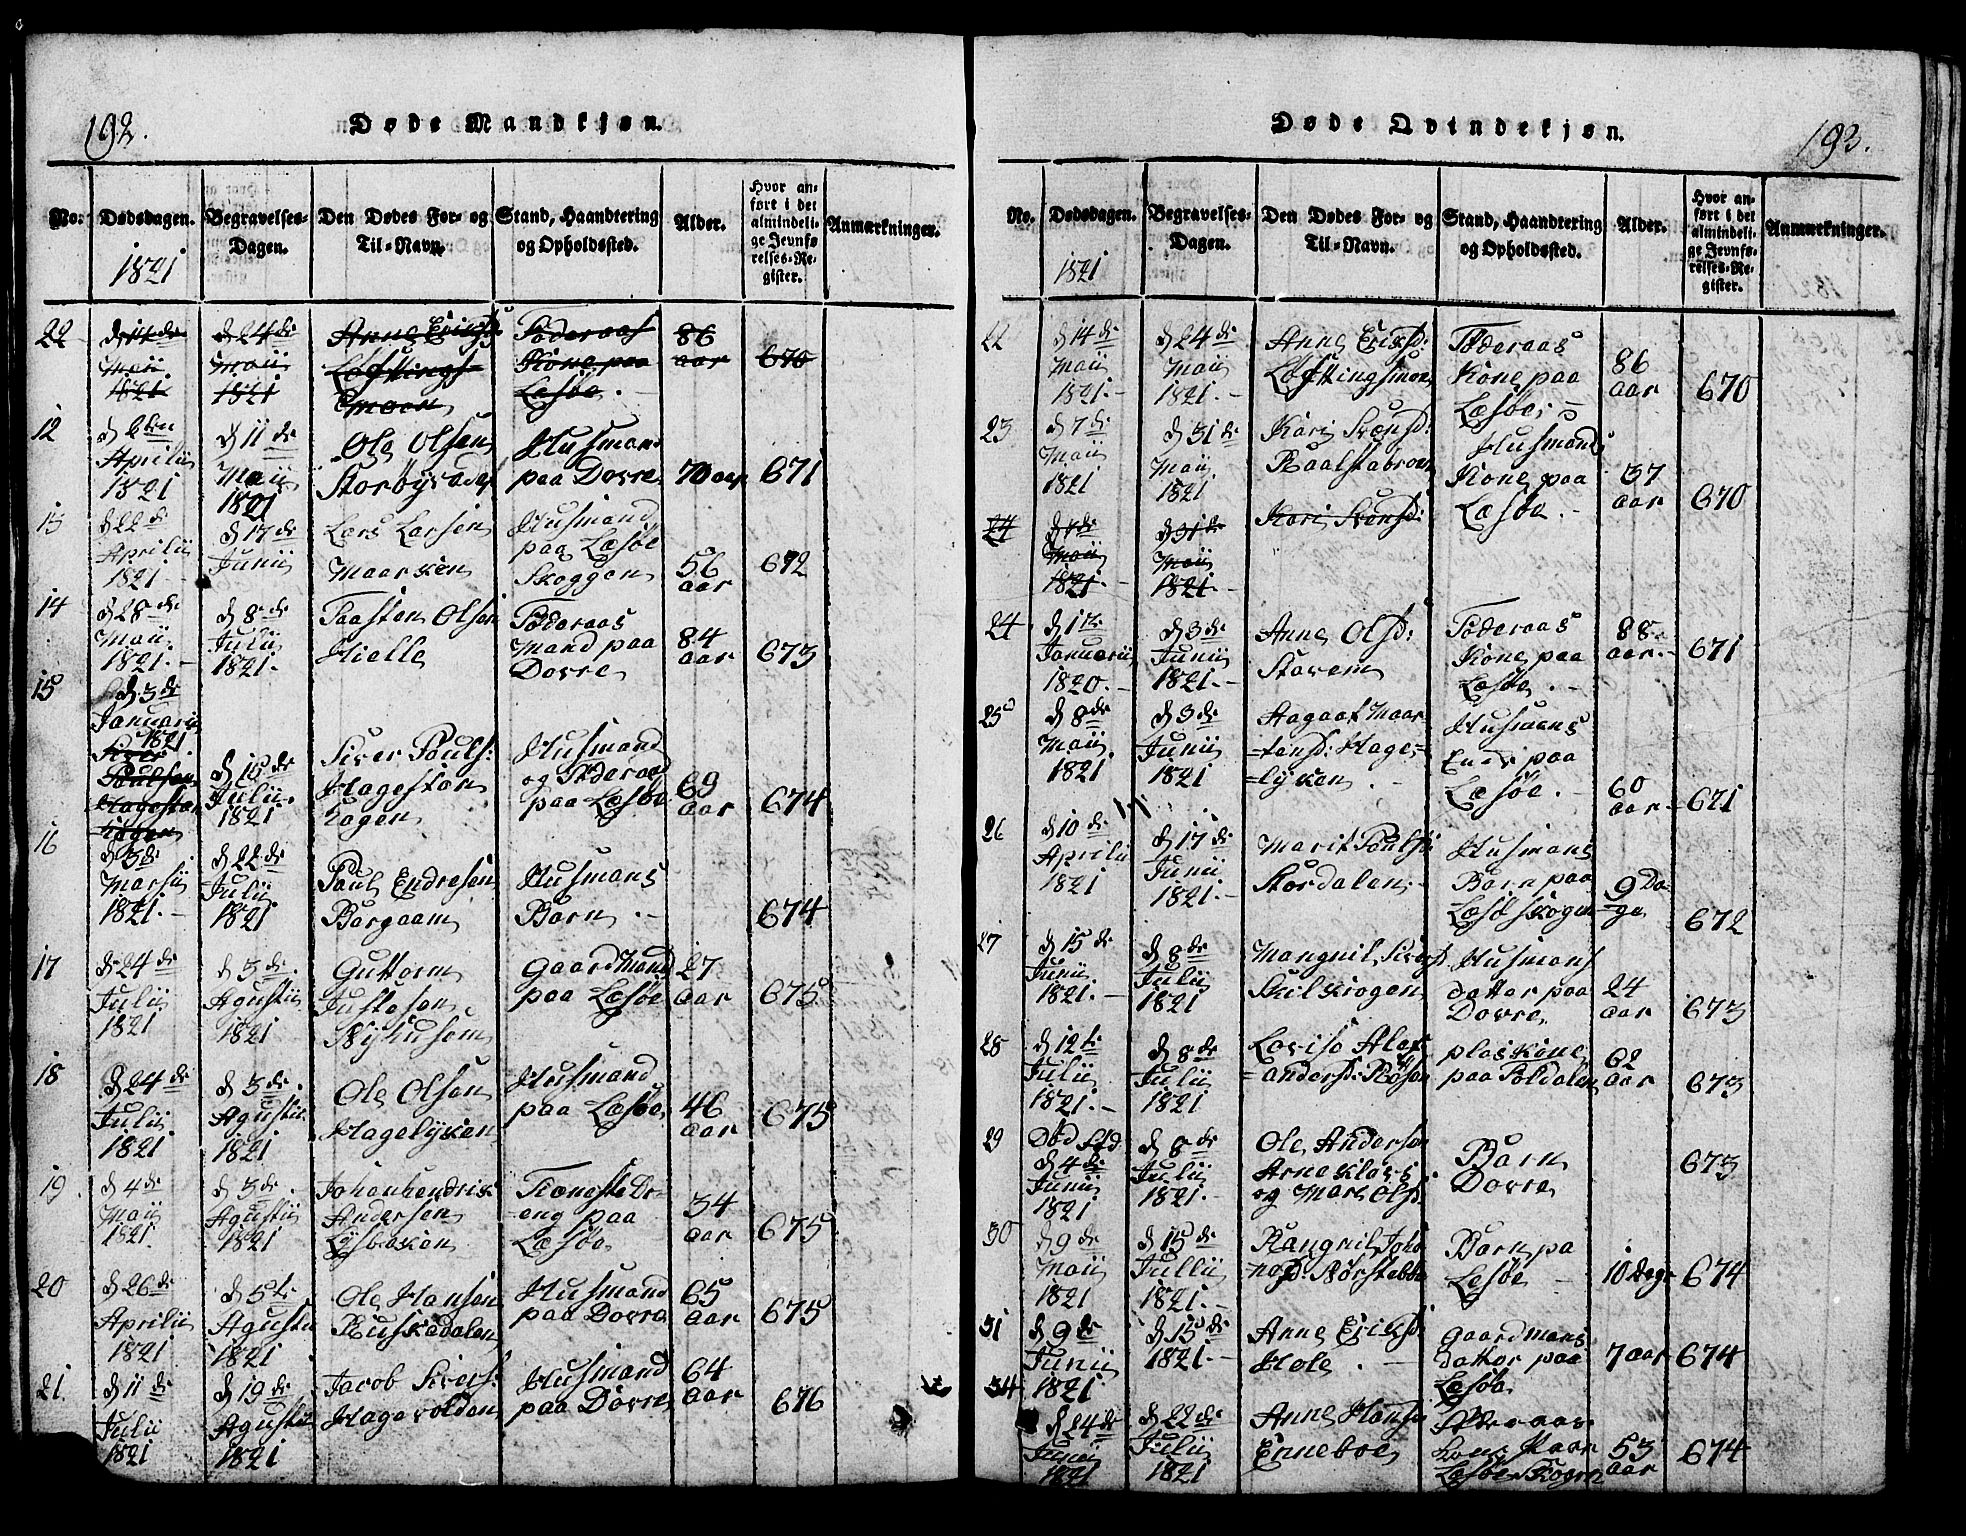 192.
Døde Mandkjøn.
No.
Dødsdagen.
1821
Begravelses-
Dagen.
Den Dødes For- og
Til-Navn.
Stand, Haandtering
og Opholdssted.
Alder.
Hvor an-
ført i det
almindeli-
ge Jevnfø
relses-Re
gister.
Anmærkninger.
22
d 14de
Maii
1821
d 24de
Maii
1821
Anne Ericksd
Løftings-
moen
Føderaas
Kone paa
Læsøe.
86
aar
670
12
d 6ten
Aprilii
1821
d 11de
Maii
1821
Ole Olsen
Husmand
paa Dovre
70 aar
671
13
d 22de
Aprilii
1821.
d 17de
Junii
Lars Larsen
Maarsken
Husmand
paa Læsøe
Skoggen
56
aar
672
14
d 28de
Maii
1821.
d 8de
Julii
1821.
Taasten Olsen
Hielle
Føderaas
Mand paa
Dovre
84
aar
673
15
d 3de
Januarii
1821.
Siver
Poulsen
Hagestøn
Kagen
d 15de
Julii.
1821
Siver Pouls:
Hagestøn
Kagen
Husmand
og Føderaad
paa Læsøe
69
aar
674
16
d 3de
Marsii
1821.
d 22de
Julii
1821
Paul Endresen
Borgaam
Husmans
Barn.
674
17
d 24de
Julii
1821
d 3de
Agustii
1821
Guttorm
Justesen
Nyhusom
Gaardmand
paa Læsøe
27
aar
675
18
d 24de
Julii
1821
d 3de
Agustii
1821
Ole Olsen
Hagelyken
Husmand
paa Læsøe
46
aar
675
19
d 4de
Maii
1821.
d 3de
Agustii
1821
Johanhendrik
Andersen
Tieneste Dr-
eng paa
Læsøe
34
aar
675
20
d 26de
Aprilii
1821
d 5te
Agustii
1821
Ole Hansen
Ruskedalen
Husmand
paa Dovre
65
aar
675
21.
d 11de
Julii
1821
d 19de
Agustii
1821
Jacob Sivers:
Hagevolden
Husmand
paa Dovre
64
aar
676
193.
Døde Qvindekjøn.
No.
Dødsdagen.
1821
Begravelses-
Dagen.
Den Dødes For- og
Til-Navn.
Stand, Haandtering
og Opholdssted.
Alder.
Hvor an-
ført i det
almindeli-
ge Jevnfø-
relses-Re-
gister.
Anmærkninger.
22
d 14de
Maii
1821.
d 24de
Maii
1821.
Anne Ericksd:
Løftingsmoen
Føderaas
Kone paa
Læsøe.
86
aar
670
23
d 7de
Maii
1821
d 31de
Maii
1821
Kari Svensd:
Raalstabroen
Husmands
Kone paa
Læsøe.
37
aar
670
24
d 7de
Maii
1821.
d 31de
Maii
1821.
Kari Svensd:
24
d 1te
Januarii
1820.
d 3de
Junii
1821.
Anne Olsd:
Storem
Føderaas
Kone paa
Læsøe.
88
aar.
671
25
d 8de
Maii
1821
d 3de
Junii
1821
Aagaat Maar
=tensd: Hage=
lyken.
Husmans
Enke paa
Læsøe.
60
aar
671
26
d 10de
Aprilii
1821
d 17de
Junii
1821.
Marit Poulsd
Stordalen
Husmans
Barn paa
Læsøskogen
9 Da
ge
672
27
d 15de
Junii
1821.
d 8de
Julii
1821
Mangnil Siversd
Husmans
datter paa
Dovre
24
aar
673
28
d 12te
Julii
1821.
d 8de
Julii
1821
Lovise Alex
=andersd:
paa Foldalen
62
aar
673
29
Død fød
d 4de
Junii
1821
d 8de
Julii
1821.
Ole Anderse
og Mari Olsd:
Barn
Dovre
673
30
d 9de
Maii
1821
d 15de
Julii
1821.
Rangnil Joha
Barn pa
Læsøe
10 Dage
674
31
d 9de
Junii
1821
d 15de
1821.
Anne Ericksd
Hole.
Gaardmans
datter paa
Læsøe
7 aar
674
34
d 24de
Junii
1821
d 22de
Julii
1821
Anne Hansd
Enneboe
Føderaas
Kone Paa
Læsøe Skogen
53
aar
674